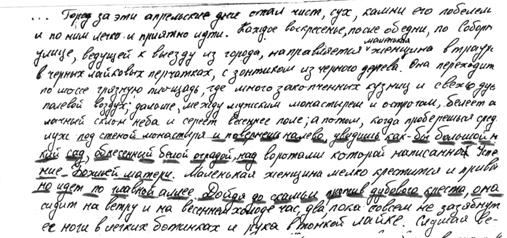 ... Город за эти апрельские дни стал чист, сух, камни его побелели
и по ним легко и приятно идти. Каждое воскресенье, после обедни, по Собор
маленькая
улице, ведущей к выезду из города, направляется женщина в трауре
в черных лайковых перчатках, с зонтиком из черного дерева. Она переходит
по шоссе грязную площадь, где много закопченных кузниц и свежо ду
полевой воздух; дальше, между мужским монастырем и острогом, белеет о
лачный склон неба и сереет весеннее поле; а потом, когда проберешься сред
лужи под стеной монастыря и повернешь налево, увидишь как-бы большой н
кий сад, обнесенный белой оградой, над воротами которой написанна Успе
ние Божией матери. Маленькая женщина мелко крестится и привы
но идет по главной аллее. Дойдя до скамьи против дубового креста, она
сидит на ветру и на весеннем холоде час, два, пока совсем не зазябнут
ее ноги в легких ботинках и рука в тонкой лайке. Слушая ве-